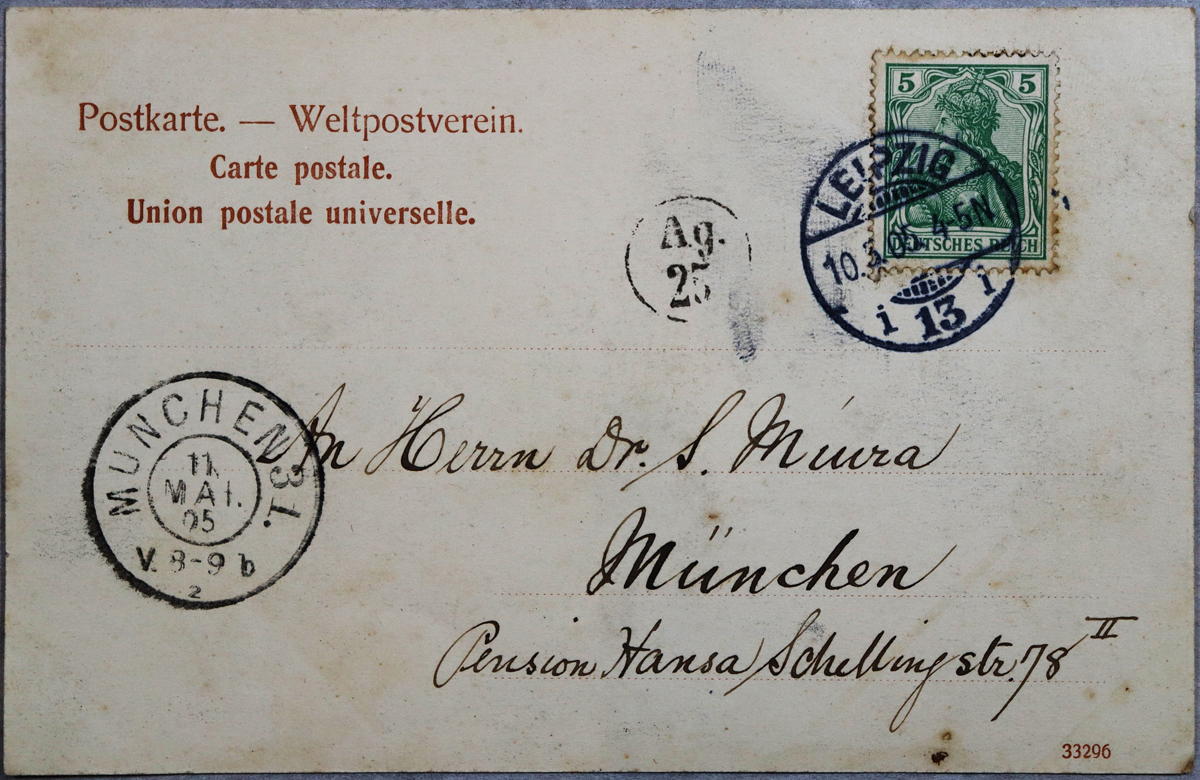 Postkarte. — Weltpostverein.
Carte postale.
Union postale universelle.
5 5
DEUTSCHES REICH
LEIPZIG
10.5.05. 4-5N
i 13 i
Ag.
25
MÜNCHEN 31.
11.
MAI.
05
V. 8-9 b
2
An Herrn Dr. S. Miura
München
Pension Hansa Schellingstr. 78 II
33296